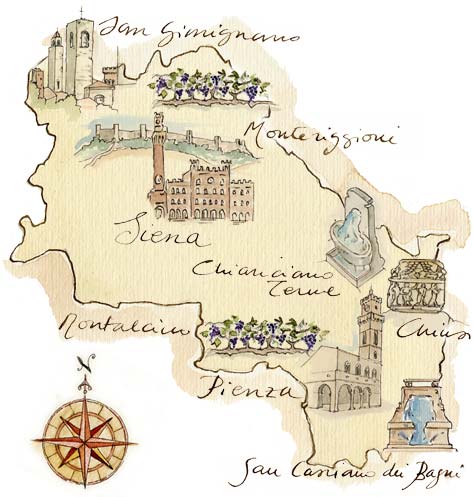 San Gimignano
Monteriggioni
Siena
Chianciano
Terme
Montalcino
Chiusi
Pienza
N
San Casciano dei Bagni